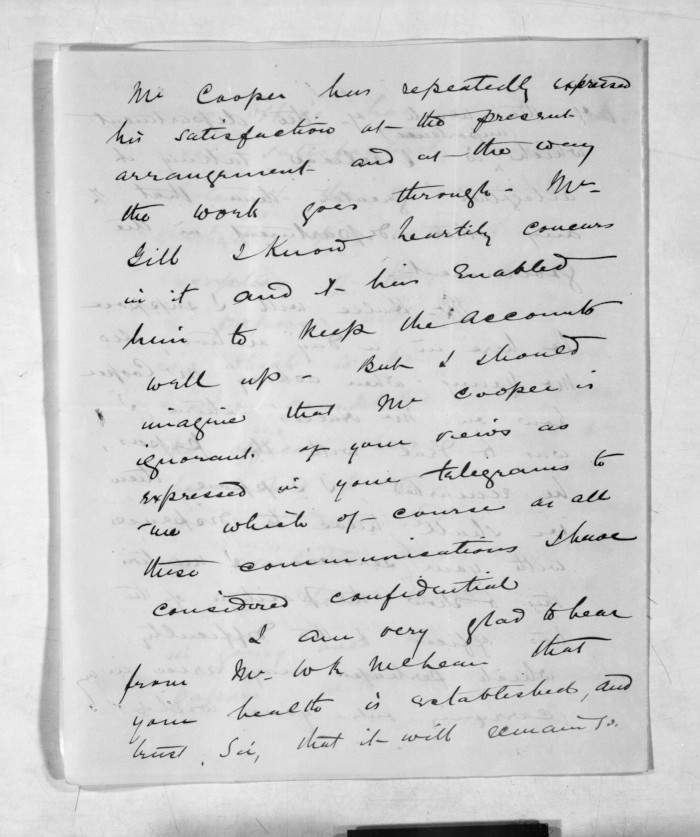 Mr Cooper has repeatedly expressed
his satisfaction at the present
arrangement and at the way
the work goes through - Mr
Gill I know heartily concurs
in it and it has enabled
him to keep the accounts
well up - But I should
imagine that Mr Cooper is
ignorant of your views as
expressed in your telegrams to
me which of course as all
these communications I have
considered confidential
I am very glad to hear
from Mr W K McLean that
your health is established, and
trust, Sir, that it will remain so.